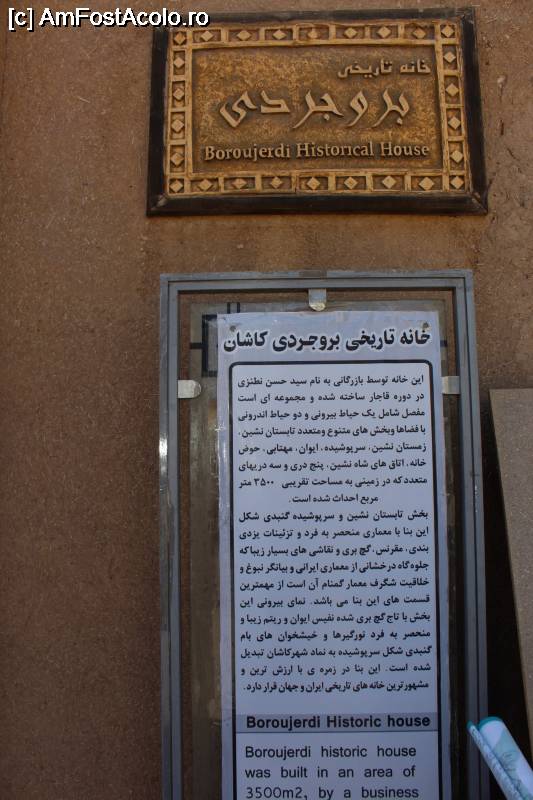 [c] AmFostAcolo.ro
خانه تاریخی
بروجردی
Boroujerdi Historical House
خانه تاریخی بروجردی کاشان
این خانه توسط بازرگانی به نام سید حسن نطنزی
در دوره قاجار ساخته شده و مجموعه ای است
مفصل شامل یک حیاط بیرونی و دو حیاط اندرونی
با فضاها وبخش های متنوع ومتعدد تابستان نشین،
زمستان نشین، سرپوشیده، ایوان، مهتابی، حوض
خانه، اتاق های شاه نشین، پنج دری و سه دریهای
متعدد که در زمینی به مساحت تقریبی ۳۵۰۰ متر
مربع احداث شده است.
بخش تابستان نشین و سرپوشیده گنبدی شکل
این بنا با معماری منحصر به فرد و تزئینات یزدی
بندی، مقرنس، گچ بری و نقاشی های بسیار زیبا که
جلوه گاه درخشانی از معماری ایرانی و بیانگر نبوغ و
خلاقیت شگرف معمار گمنام آن است از مهمترین
قسمت های این بنا می باشد. نمای بیرونی این
بخش با تاج گچ بری شده نفیس ایوان و ریتم زیبا و
منحصر به فرد نورگیرها و خیشخوان های بام
گنبدی شکل سرپوشیده به نماد شهرکاشان تبدیل
شده است. این بنا در زمره ی با ارزش ترین و
مشهورترین خانه های تاریخی ایران و جهان قرار دارد.
Boroujerdi Historic house
Boroujerdi historic house
was built in an area of
3500m2, by a business